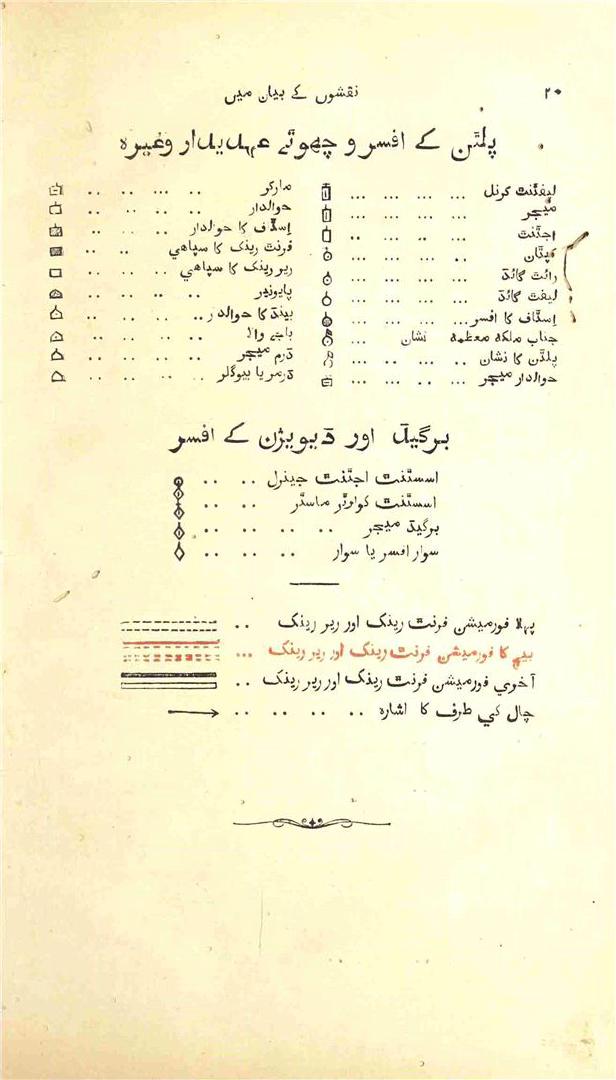 ۲۰
نقشوں کے بیان میں
پلٹن کے افسر و چھوٹے عہدیدار وغیرہ
لیفٹنٹ کرنل
میجر
اجٹنٹ
کپتان
رائٹ گائڈ
لیفٹ گائڈ
اسٹاف کا افسر
جناب ملکہ معظمہ نشان
پلٹن کا نشان
حوالدار میجر
مارکر
حوالدار
اسٹاف کا حوالدار
فرنٹ رینک کا سپاهي
ریر رینک کا سپاهي
پایونیر
بینڈ کا حوالدار
باجے والا
ڈرم میجر
ڈرمر یا بیوگلر
برگیڈ اور ڈیویژن کے افسر
اسسٹنٹ اجٹنٹ جینرل
اسسٹنٹ کواوٹر ماسٹر
برگیڈ میجر
سوار افسر یا سوار
پہلا فورمیشن فرنٹ رینک اور ریر رینک
بیچ کا فورمیشن فرنٹ رینک اور ریر رینک
آخري فورمیشن فرنٹ رینک اور ریر رینک
چال کي طرف کا اشارہ